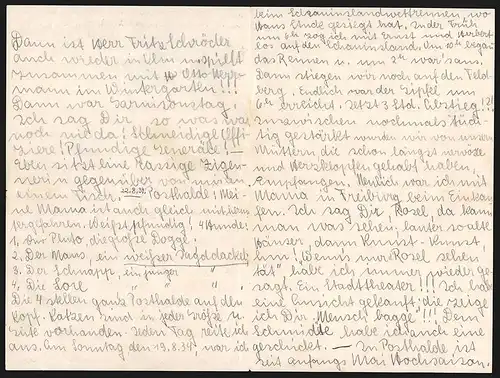 Dann ist Herr Fritz Schröder
auch wieder in Ulm u. spielt
zusammen mit Otto Herr-
mann im Wintergarten!!!
Dann war Garnisonstag,
Ich sag Dir so was war
noch nie da! Schneidige Offi-
ziere! Pfundige Generäle!
Eben sitzt eine rassige Zigeu-
nerin gegenüber von mir an
einem Tisch. 22.8.34. Posthalde! Mei-
ne Mama ist auch gleich mit uns
hergefahren. Weißt, pfundig! 4 Hunde:
1. Der Pluto, die große Dogge
2. Der Maus, ein weißer Jagddackel
3. Der Schnapp, ein junger "
4. Die Lore " "
Die 4 stellen ganz Posthalde auf den
Kopf. Katzen sind in jeder Größe u.
Güte vorhanden. Jeden Tag reite ich
aus. Am Sonntag den 19.8.34, war ich
beim Schauinslandwettrennen, wo
Hans gesiegt hat. In der Früh
um 6h zog ich mit Ernst und Herbert
los auf den Schauinsland. Um 10h began
das Rennen u. um 2h war's aus.
Dann stiegen wir noch auf den Feld-
berg. Endlich war der Gipfel um
6h erreicht. Jetzt 3 Std. Abstieg!?!
Inzwischen nochmals tüch-
tig gestärkt wurden wir von unsern
Müttern die schon längst nervöse
und Herzklopfen gehabt haben,
empfangen. Neulich war ich mit
Mama in Freiburg beim Einkau-
fen. Ich sag Dir, Rosel, da kann
man was sehen, lauter so alte
Häuser, dann Kunst - Kunst,
hm! "Wenn's nur Rosel sehen
tät" habe ich immer wieder ge-
sagt. Ein Stadttheater!!! Ich habe
eine Ansicht gekauft, die zeige
ich Dir. "Mensch bagge"!!! Dem
Schmidte habe ich auch eine
geschickt. — In Posthalde ist
seit anfangs Mai Hochsaison.